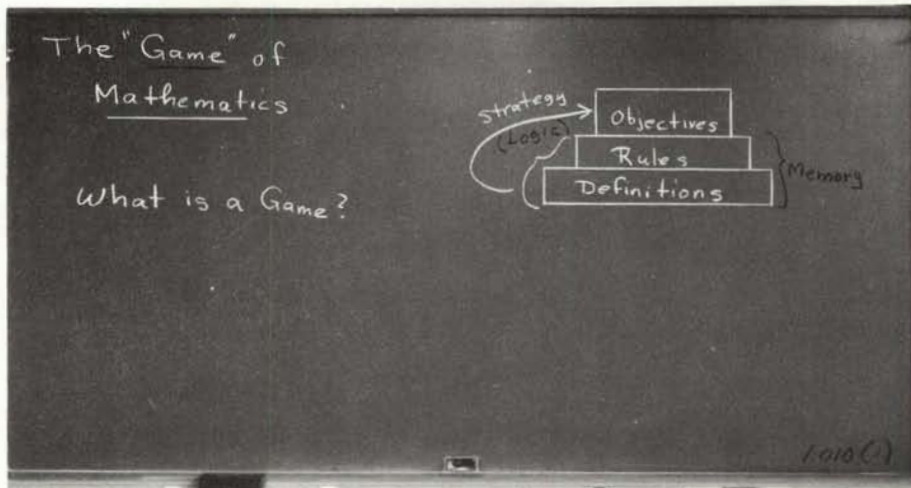 The "Game" of
Mathematics
What is a Game?
strategy
(Logic)
Objectives
Rules
Definitions
Memory
1.010(1)